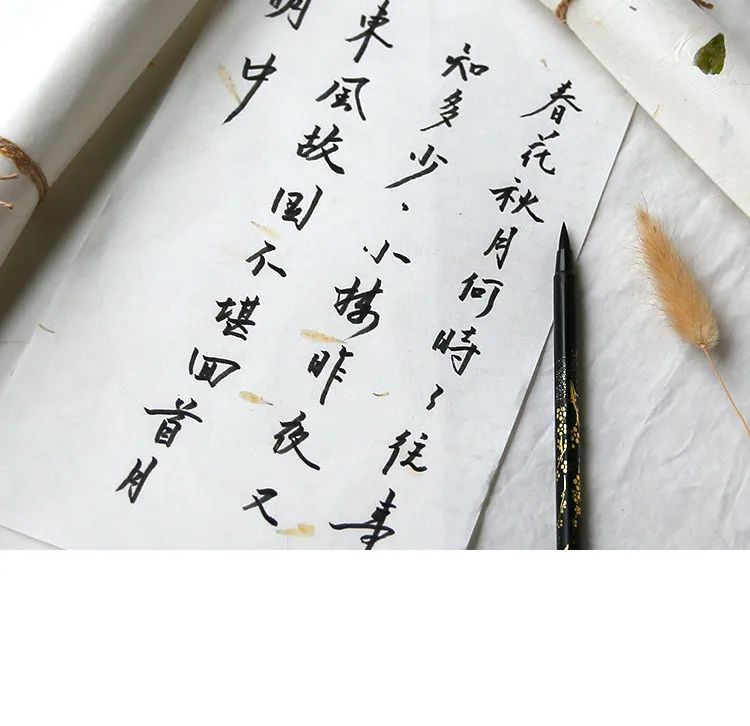 春花秋月何時了往事
知多少、小楼昨夜又
東風故国不堪回首月
明中